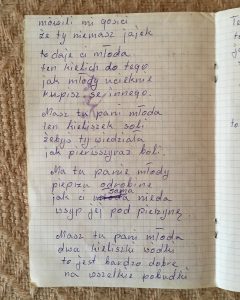 mówili mi goście
że ty niemasz jajek
to daje ci młoda
ten kielich do tego
jak młody ucieknie
kupisz se innego.
Masz tu pani młoda
ten kieliszek soli
żebyś ty wiedziała
jak pierwszy raz boli.
Ma tu panie młody
pieprzu odrobine
jak ci sama nieda
wsyp jej pod pierzynę
Masz tu pani młoda
dwa kieliszki wodki
to jest bardzo dobre
na wszelkie